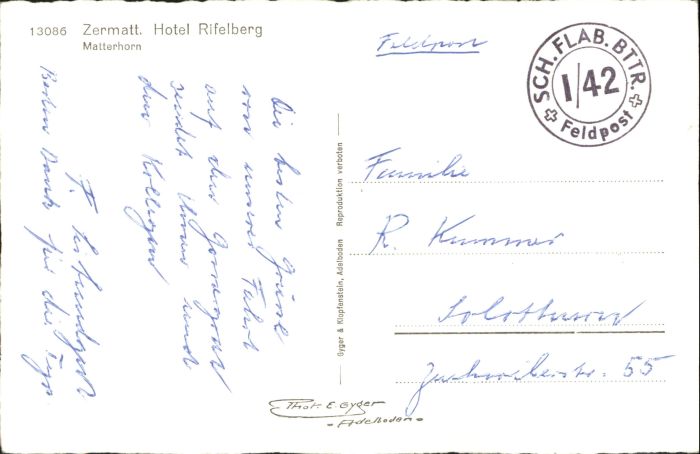 13086 Zermatt. Hotel Rifelberg
Matterhorn
Feldpost
SCH. FLAB. BTTR.
I/42
Feldpost
Die besten Grüsse
von unserer Fahrt
auf den Gornergrat
sendet Ihnen und
den Kollegen
F.
Besten Dank für die
Gyger & Klopfenstein, Adelboden Reproduktion verboten
Familie
R. Kummer
Solothurn
55
Phot. E. Gyger
- Adelboden -